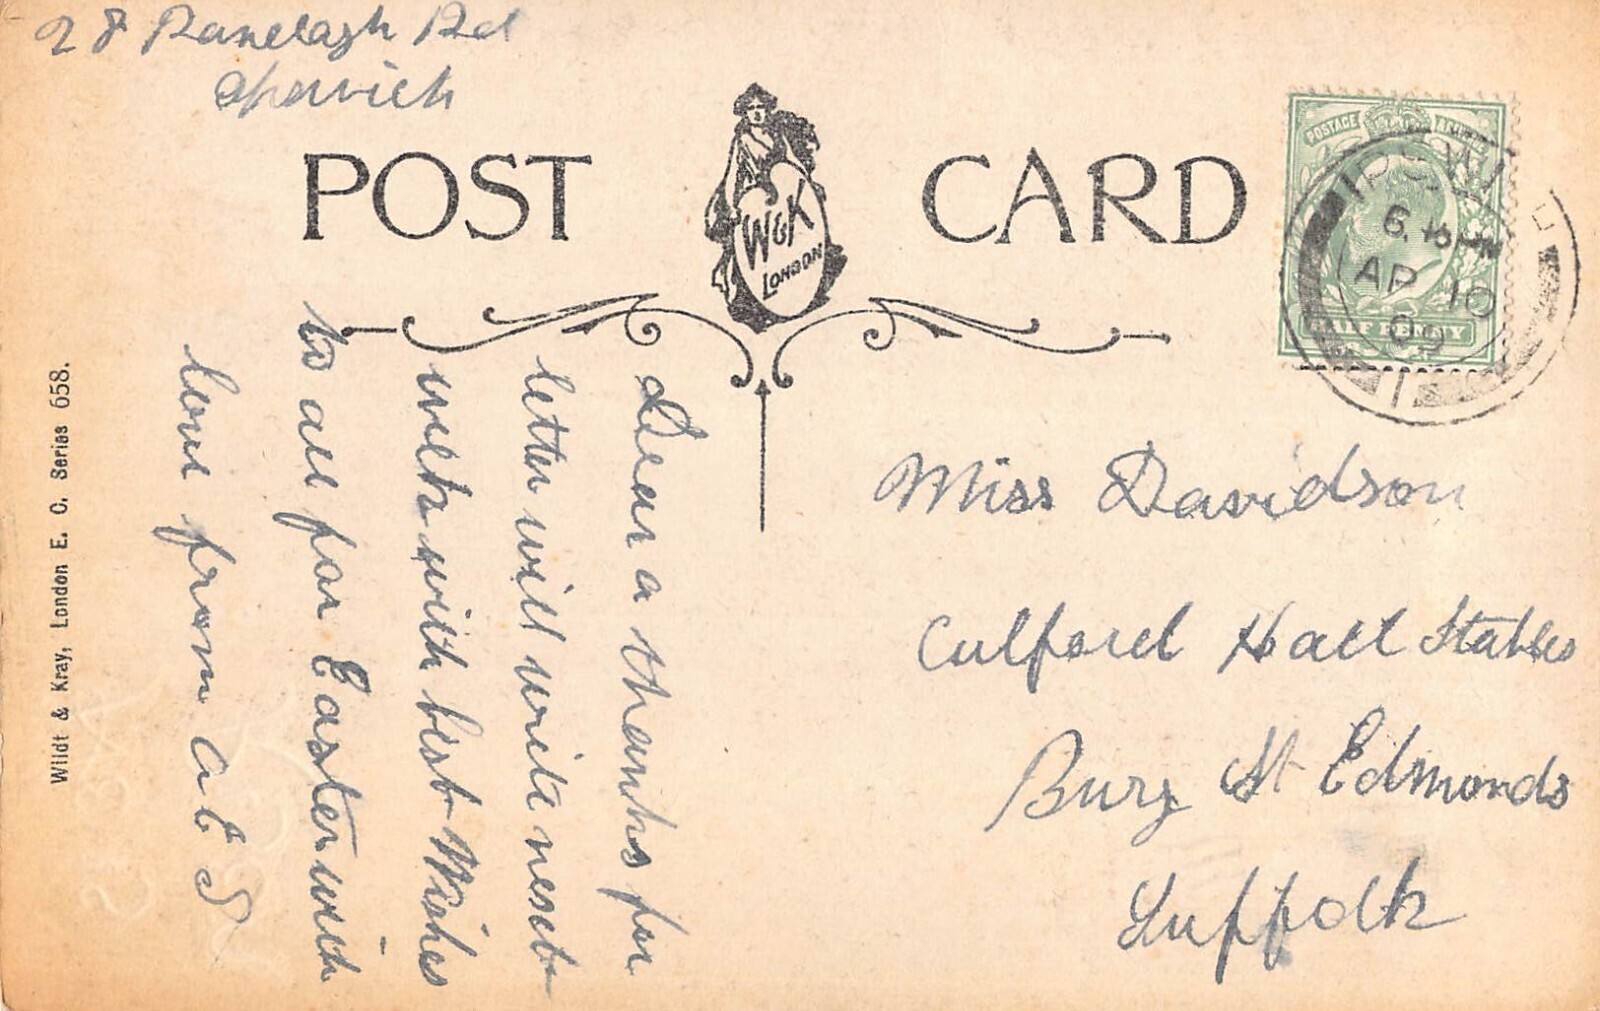 28 Ranelagh Rd
Ipswich
POST CARD
W&K
LONDON
POSTAGE
HALF PENNY
IPSWI
AP 10
09
Dear a thanks for
letter will write next
week with best Wishes
to all for Easter with
love from a E S
Miss Davidson
Culford Hall Stables
Bury St Edmonds
Suffolk
Wildt & Kray, London E. C. Series 658.